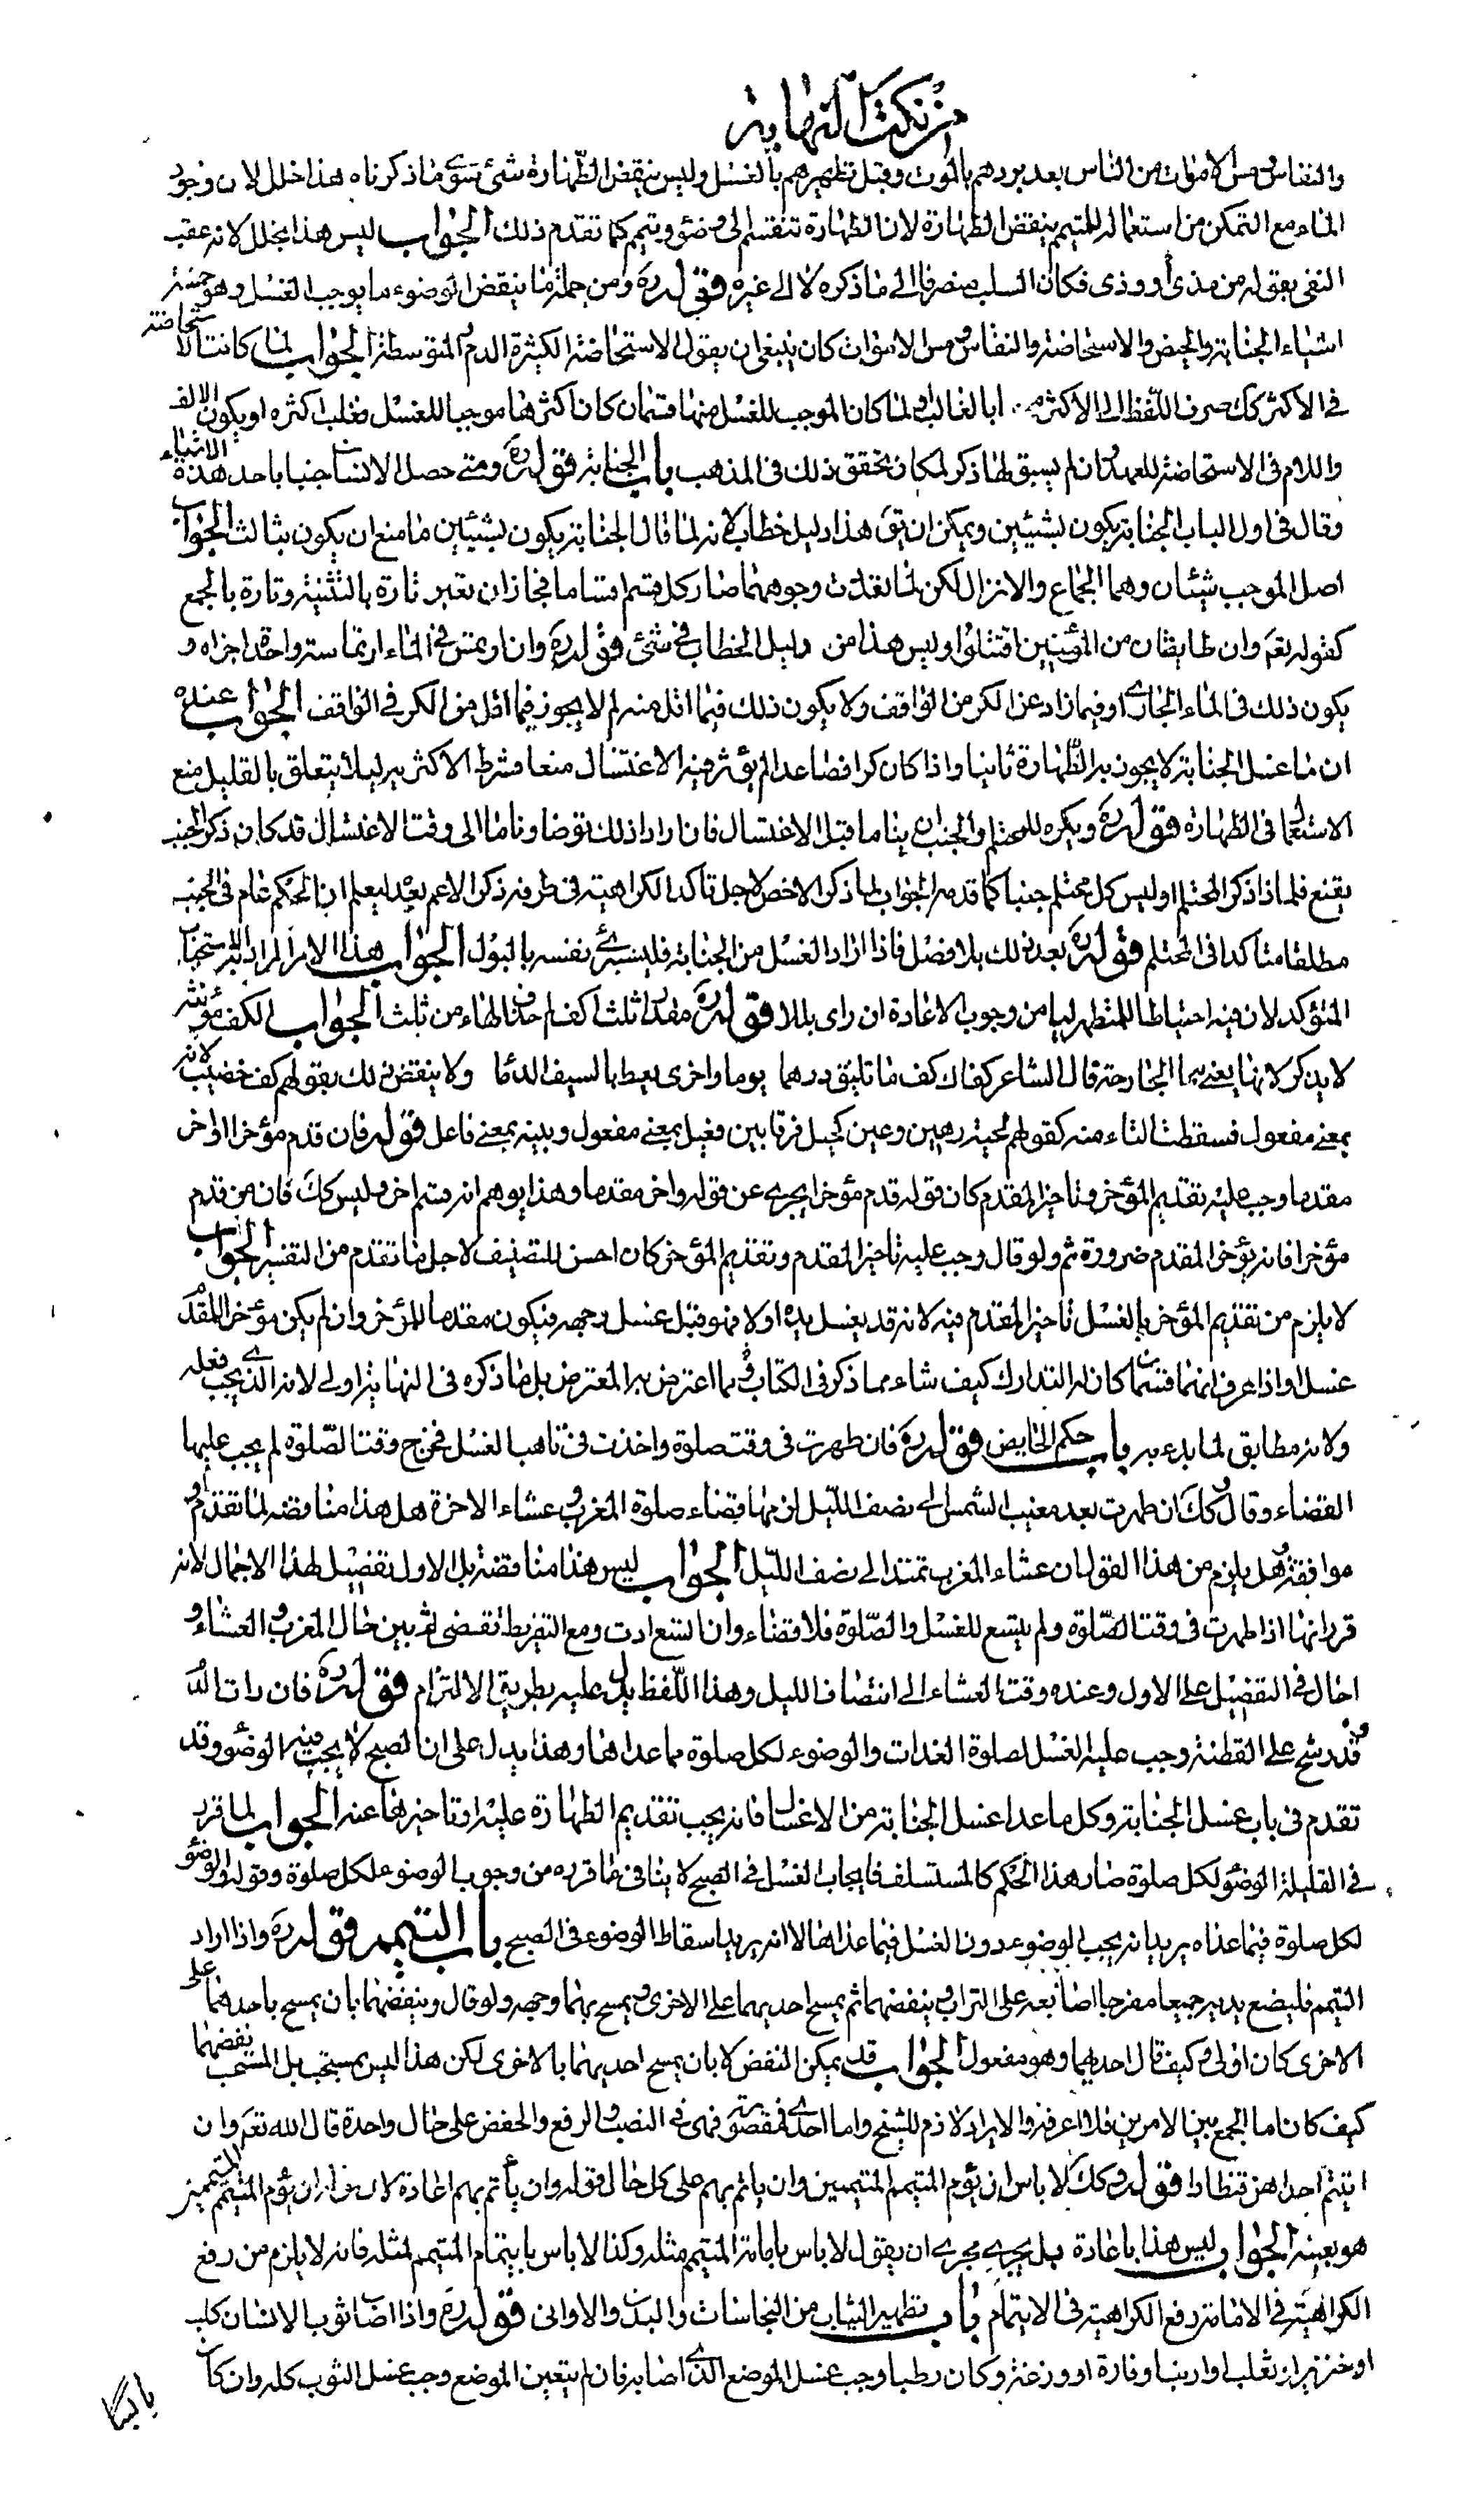 من نكت النهاية
والنفاس ومس الاموات من الناس بعد بردهم بالموت وقبل تطهيرهم بالغسل وليس ينقض الطهارة شئ سوى ما ذكرناه هذا خلل لان وجود
الماء مع التمكن من استعماله للمتيمم ينقض الطهارة لان الطهارة تنقسم الى وضوء وتيمم كما تقدم ذلك الجواب ليس هذا بخلل لانه عقيب
النفى بقوله من مذى أو وذى فكان السلب منصرفا الى ما ذكره لا الى غيره قوله ره ومن جملة ما ينقض الوضوء ما يوجب الغسل وهو خمسة
اشياء الجنابة والحيض والاستحاضة والنفاس ومس الاموات كان ينبغى ان يقول الاستحاضة الكثيرة الدم والمتوسطة الجواب لما كانت الاستحاضة
فى الاكثر كك صرف اللفظ الى الاكثر ابا لغالب ولما كان الموجب للغسل منها قسمان كانا كثرها موجبا للغسل فغلب كثره او يكون الالف
واللام فى الاستحاضة للعهد وان لم يسبق لها ذكر لمكان تحقق ذلك فى المذهب باب الجنابة قوله ره ومتى حصل الانسان جنبا باحد هذه الاشياء
وقال فى اول الباب الجنابة يكون بشيئين ويمكن ان يق هذا دليل خطاب لانه لما قال الجنابة يكون بشيئين ما منع ان يكون بثالث الجواب
اصل الموجب شيئان وهما الجماع والانزال لكن لما تعددت وجوههما صار كل قسم اقساما فجاز ان تعبر تارة بالتثنية وتارة بالجمع
كقوله تعم وان طايفتان من المؤمنين اقتتلوا وليس هذا من دليل الخطاب فى شئ قوله ره وان ارتمس فى الماء ارتماسة واحدة اجزاه و
يكون ذلك فى الماء الجارى او فيما زاد عن الكر من الواقف ولا يكون ذلك فيما اقل منه لم لا يجوز فيما اقل من الكر فى الواقف الجواب عنده
ان ماء غسل الجنابة لا يجوز به الطهارة ثانيا واذا كان كرا فصاعدا لم يؤثر فيه الاغتسال منعا فشرط الاكثرية لئلا يتعلق بالقليل منع
الاستعمال فى الطهارة قوله ره ويكره للمحتلم والجنب ان يناما قبل الاغتسال فان ارادا ذلك توضا وناما الى وقت الاغتسال قد كان ذكر الجنب
يقنع فلماذا ذكر المحتلم اوليس كل محتلم جنبا كما قدمه الجواب لما ذكر الاخص لاجل تاكد الكراهية فى طرفه ذكر الاعم بعد ليعلم ان الحكم عام فى الجنب
مطلقا متاكدا فى المحتلم قوله ره بعد ذلك بلا فصل فاذا اراد الغسل من الجنابة فليستبرئ نفسه بالبول الجواب هذا الامر المراد به الاستحباب
المتؤكد لان فيه احتياطا للمتطهر ليامن وجوب الاعادة ان راى بللا قوله ره مقدار ثلث اكف لم حذف الهاء من ثلث الجواب الكف مؤنثة
لا يذكر لانها يعنى بها الجارحة قال الشاعر كفاك كف ما تليق درهما يوما واخرى يعط بالسيف الدما ولا ينقض ذلك بقولهم كف خضيب لانه
بمعنى مفعول فسقطت التاء منه كقولهم لحية دهين وعين كحيل فرقا بين فعيل بمعنى مفعول وبينه بمعنى فاعل قوله فان قدم مؤخرا او اخر
مقدما وجب عليه تقديم المؤخر وتاخير المقدم كان قوله قدم مؤخرا يجرى عن قوله واخر مقدما وهذا يوهم انه قسم اخر وليس كك فان من قدم
مؤخرا فانه يؤخر المقدم ضرورة ثم ولو قال وجب عليه تاخير المقدم وتقديم المؤخر كان احسن للتصنيف لاجل ما تقدم من التفسير الجواب
لا يلزم من تقديم المؤخر بالغسل تاخير المقدم فيه لانه قد يغسل يده اولا فهو قبل غسل وجهه فيكون مقدما للمؤخر وان لم يكن مؤخرا للمقدم
غسلا واذا عرف انهما قسمان كان له التدارك كيف شاء مما ذكر فى الكتاب وبما اعترض به المعترض بل ما ذكره فى النهاية اولى لانه الذى يجب فعله
ولانه مطابق لما بدء به باب حكم الحايض قوله ره فان طهرت فى وقت صلوة واخذت فى تاهب الغسل فخرج وقت الصلوة لم يجب عليها
القضاء وقال وكك ان طهرت بعد مغيب الشمس الى نصف الليل لزمها قضاء صلوة المغرب وعشاء الاخرة هل هذا مناقضة لما تقدم او
موافقة وهل يلزم من هذا القول ان عشاء المغرب تمتد الى نصف الليل الجواب ليس هذا مناقضة بل الاول تفصيل لهذا الاجمال لانه
قرر انها اذا طهرت فى وقت الصلوة ولم يتسع للغسل والصلوة فلا قضاء وان اتسع اعادت ومع التفريط تقضى ثم بين حال المغرب والعشاء و
احال فى التفصيل على الاول وعنده وقت العشاء الى انتصاف الليل وهذا اللفظ يدل عليه بطريق الالتزام قوله ره فان رات الدم
قد رشح على القطنة وجب عليه الغسل لصلوة الغدات والوضوء لكل صلوة مما عداها وهذا يدل على ان الصبح لا يجب فيه الوضوء وقد
تقدم فى باب غسل الجنابة وكل ما عدا غسل الجنابة من الاغسال فانه يجب تقديم الطهارة عليه او تاخيرها عنه الجواب لما قرر
فى القليلة الوضوء لكل صلوة صار هذا الحكم كالمستسلف فايجاب الغسل فى الصبح لا ينافى ما قرره من وجوب الوضوء لكل صلوة وقوله والوضوء
لكل صلوة فيما عداه يريد انه يجب الوضوء دون الغسل فيما عداها لا انه يريد اسقاط الوضوء فى الصبح باب التيمم قوله ره واذا اراد
التيمم فليضع يديه جميعا مفرجا اصابعه على التراب وينفضهما ثم يمسح احديهما على الاخرى ويمسح بهما وجهه ولو قال وينفضهما بان يمسح باحدهما على
الاخرى كان اولى وكيف قال احديهما وهو مفعول الجواب قد يمكن النفض لا بان يمسح احديهما بالاخرى لكن هذا ليس بمستحب بل المستحب نفضهما
كيف كان اما الجمع بين الامرين فلا اعرفه والايراد لازم للشيخ واما احدى فمقصورة فهى فى النصب والرفع والخفض على حال واحدة قال الله تعم وان
اتيتم احداهن قنطارا قوله وكك لا باس ان يؤم المتيمم المتيممين وان ياتم بهم على كل حال وقوله وان ياتم بهم اعادة لان ان يؤم المتيمم المتيممين
هو بعينه الجواب وليس هذا باعادة بل يجرى مجرى ان يقول لا باس بامامة المتيمم مثله وكذا لا باس بايتمام المتيمم لمثله فانه لا يلزم من رفع
الكراهية فى الامامة رفع الكراهية فى الايتمام باب تطهير الثياب من النجاسات والبدن والاوانى قوله ره واذا اصاب ثوب الانسان كلب
او خنزير او ثعلب او ارنب او فارة او وزغة وكان رطبا وجب غسل الموضع الذى اصابه فان لم يتعين الموضع وجب غسل الثوب كله وان كان
يابسا